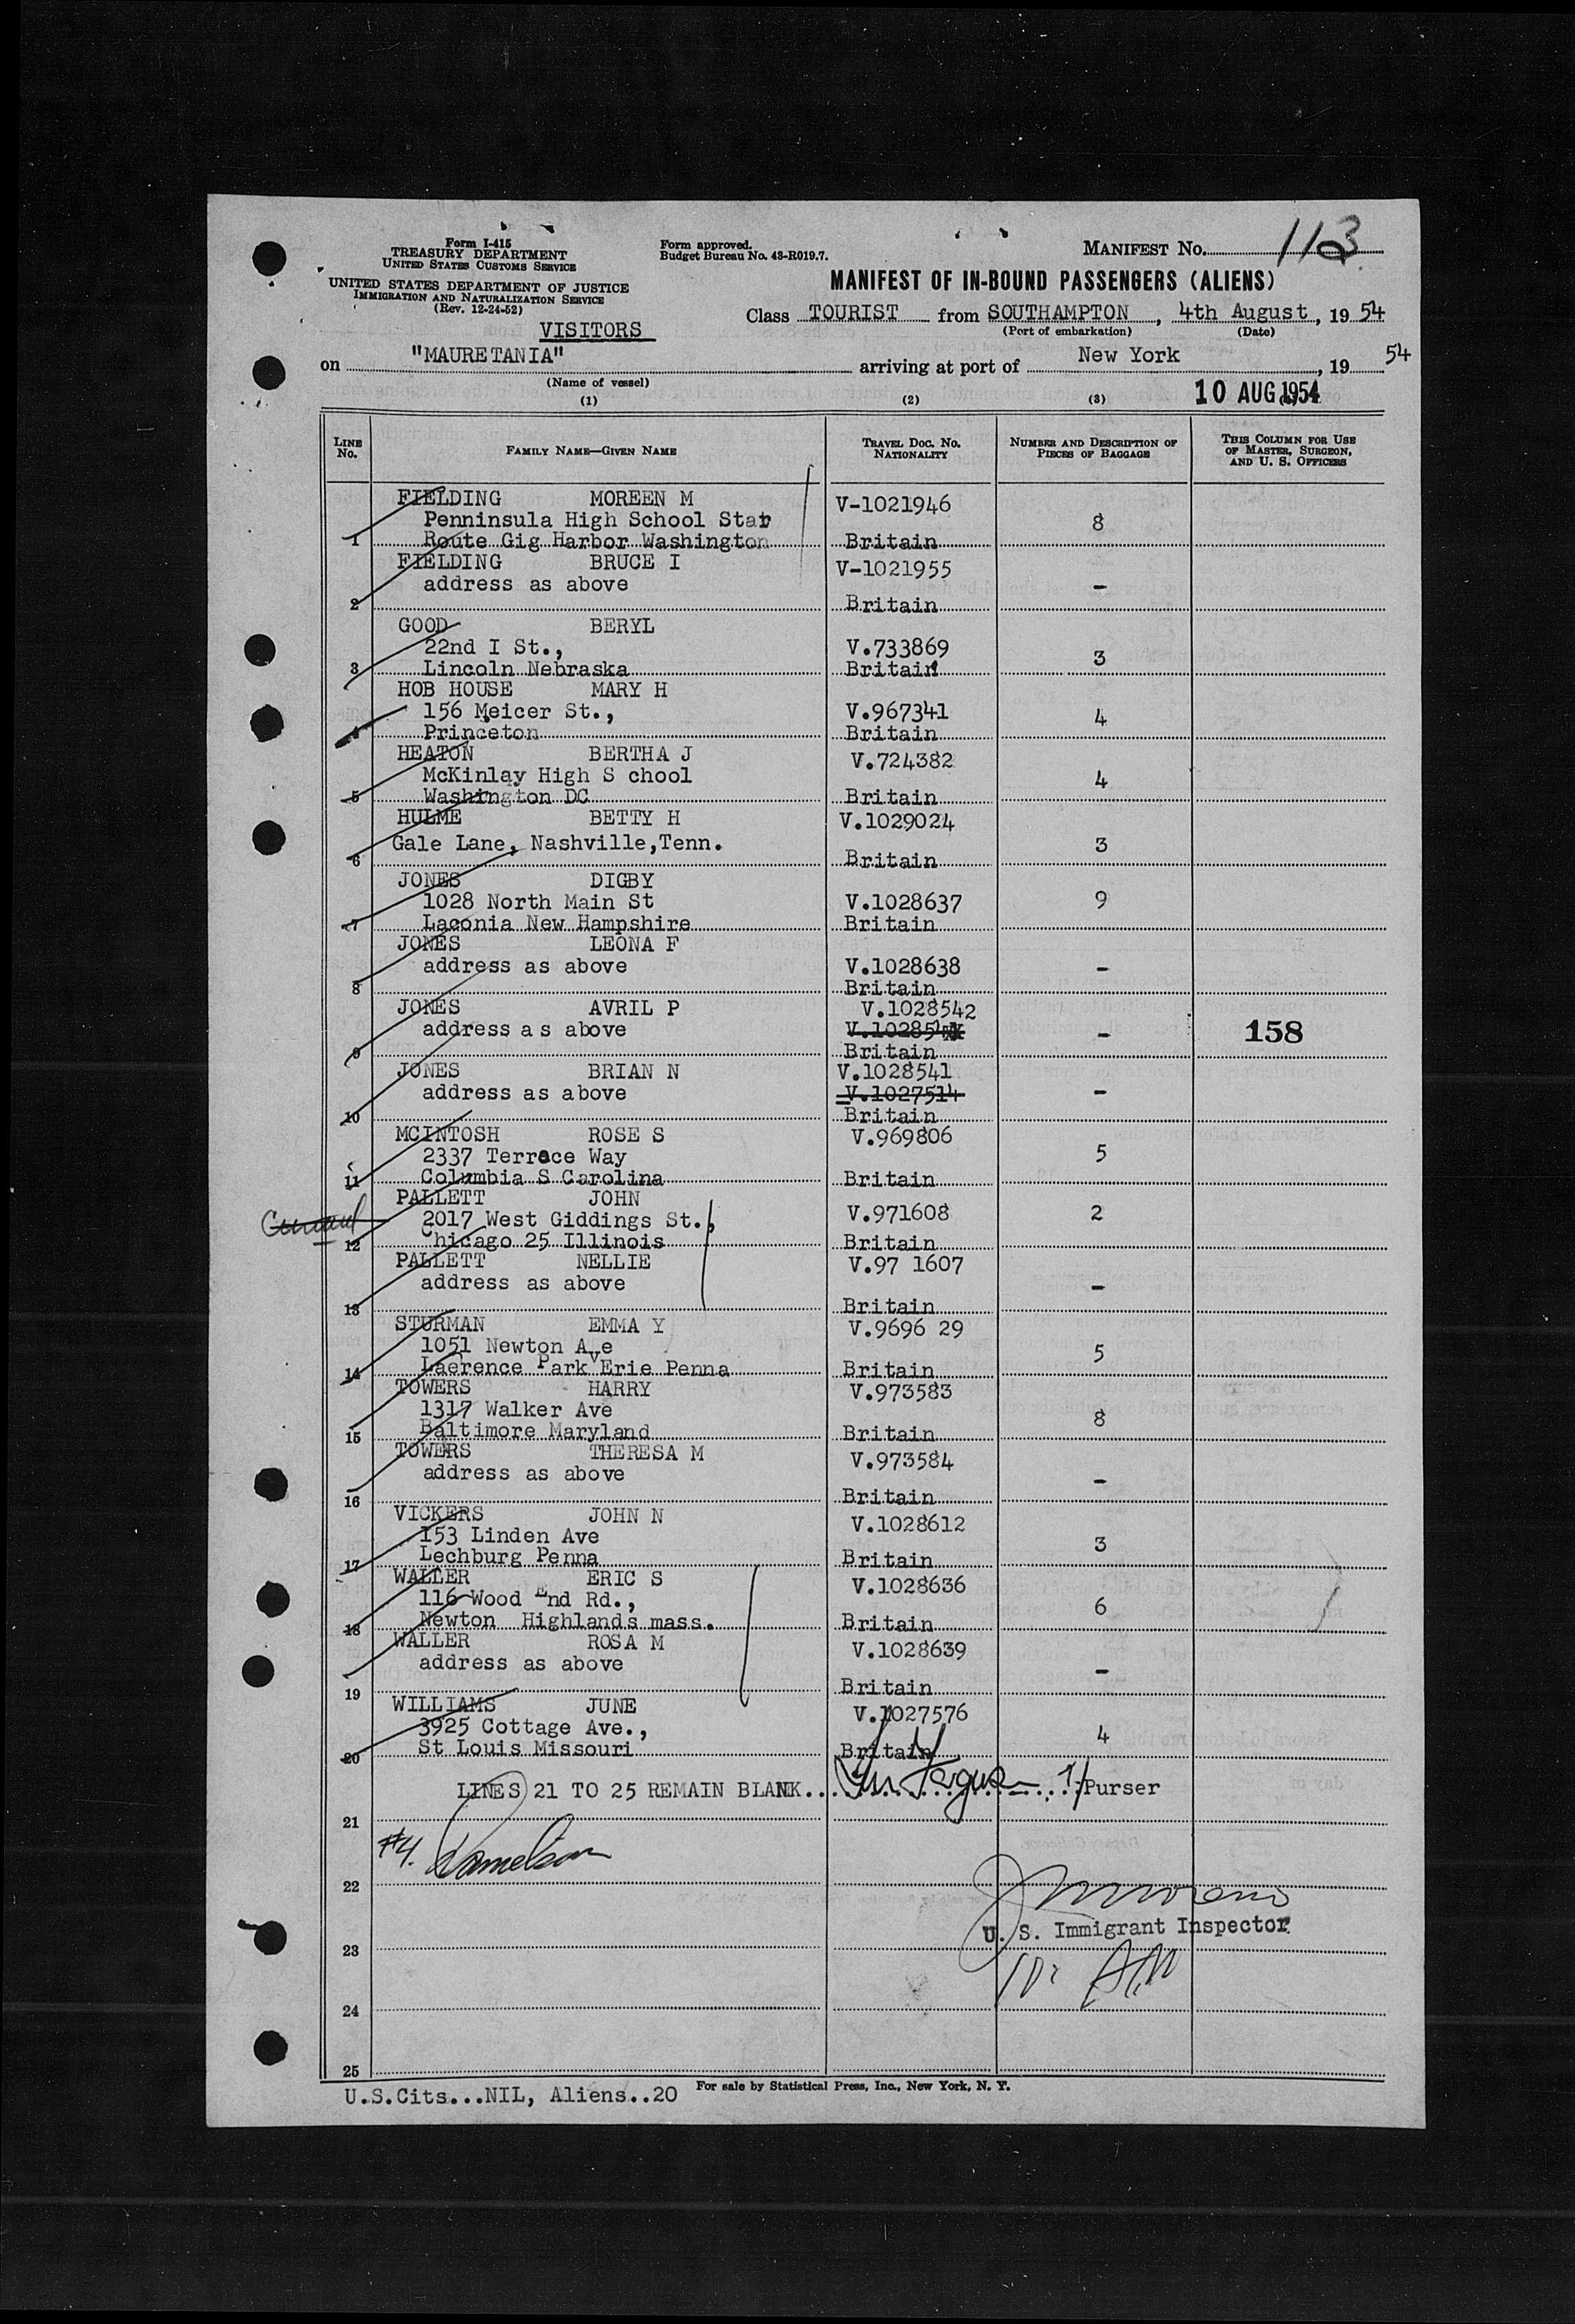 Form I-415
TREASURY DEPARTMENT
UNITED STATES CUSTOMS SERVICE
UNITED STATES DEPARTMENT OF JUSTICE
IMMIGRATION AND NATURALIZATION SERVICE
(Rev. 12-24-52)
Form approved.
Budget Bureau No. 43-R019.7.
MANIFEST No. 113
MANIFEST OF IN-BOUND PASSENGERS (ALIENS)
Class TOURIST from SOUTHAMPTON, 4th August, 19 54
(Port of embarkation) (Date)
VISITORS
on "MAURETANIA" arriving at port of New York, 19 54
(Name of vessel)
10 AUG 1954
(1) (2) (3)
LINE No. FAMILY NAME—GIVEN NAME TRAVEL DOC. NO. NATIONALITY NUMBER AND DESCRIPTION OF PIECES OF BAGGAGE THIS COLUMN FOR USE OF MASTER, SURGEON, AND U. S. OFFICERS
FIELDING MOREEN M V-1021946
Penninsula High School Star 8
1 Route Gig Harbor Washington Britain
FIELDING BRUCE I V-1021955
address as above -
2 Britain
GOOD BERYL
22nd I St., V.733869 3
3 Lincoln Nebraska Britain
HOB HOUSE MARY H
156 Meicer St., V.967341 4
4 Princeton Britain
HEATON BERTHA J V.724382
McKinlay High S chool 4
5 Washington DC Britain
HULME BETTY H V.1029024
Gale Lane, Nashville,Tenn. 3
6 Britain
JONES DIGBY
1028 North Main St V.1028637 9
7 Laconia New Hampshire Britain
JONES LEONA F
address as above V.1028638 -
8 Britain
JONES AVRIL P V.1028542
address a s above - 158
9 Britain
JONES BRIAN N V.1028541
address as above V.1027514 -
10 Britain
MCINTOSH ROSE S V.969806
2337 Terrace Way 5
11 Columbia S Carolina Britain
PALLETT JOHN
2017 West Giddings St., V.971608 2
12 Chicago 25 Illinois Britain
PALLETT NELLIE V.97 1607
address as above -
13 Britain
STURMAN EMMA Y V.9696 29
1051 Newton Ave 5
14 Laerence Park Erie Penna Britain
TOWERS HARRY V.973583
1317 Walker Ave 8
15 Baltimore Maryland Britain
TOWERS THERESA M V.973584
address as above -
16 Britain
VICKERS JOHN N V.1028612
153 Linden Ave 3
17 Lechburg Penna Britain
WALLER ERIC S V.1028636
116 Wood End Rd., 6
18 Newton Highlands mass. Britain
WALLER ROSA M V.1028639
address as above -
19 Britain
WILLIAMS JUNE V.1027576
3925 Cottage Ave., 4
20 St Louis Missouri Britain
LINES 21 TO 25 REMAIN BLANK.. Purser
21
#4.
22
U. S. Immigrant Inspector
23
24
25
U.S.Cits...NIL, Aliens..20
For sale by Statistical Press, Inc., New York, N. Y.